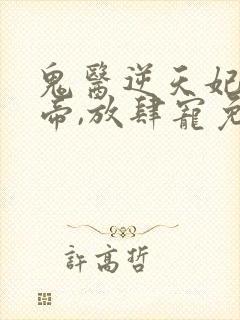 鬼醫逆天妃
帝,放肆寵免
許高哲